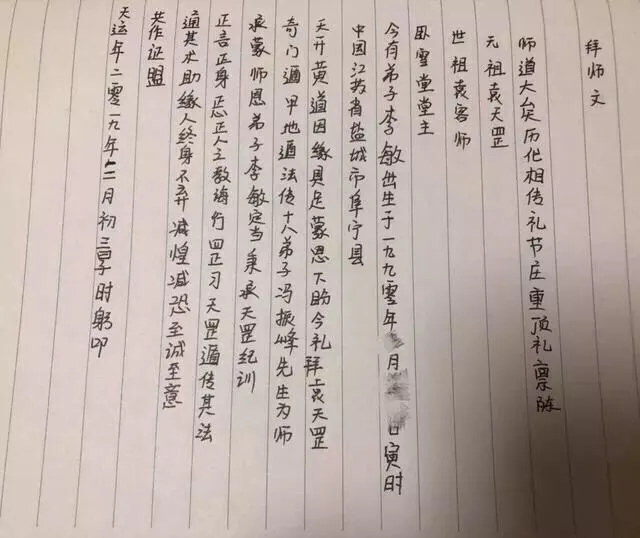 拜师文
师道大矣历化相传礼节庄重顶礼禀陈
元祖袁天罡
世祖袁客师
卧雪堂堂主
今有弟子李敏出生于一九九零年月日寅时
中国江苏省盐城市阜宁县
天开黄道因缘具足蒙恩下助今礼拜上袁天罡
奇门遁甲地遁法传十八弟子冯振峰先生为师
承蒙师恩弟子李敏定当秉承天罡纪训
正言正身正心正人主教诲行四正习天罡遁传其法
遁其术助缘人终身不弃诚惶诚恐至诚至意
共作证盟
天运年二零一九年二月初三子时躬叩